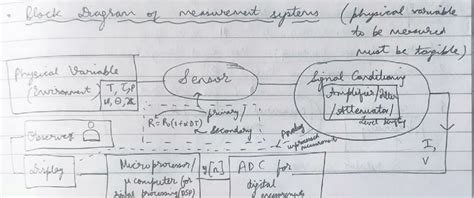 Block Diagram of measurement systems (physical variable
to be measured
must be tagible)
Physical Variable
(Environment)
Sensor
Signal Conditioning
Amplifier/
Attenuator/
R = R₀(1+αΔT)
primary/
secondary
Observer
Analog
I,
V
Display
Microprocessor/
μ computer for
signal processing (DSP)
y[n]
ADC for
digital
measurements